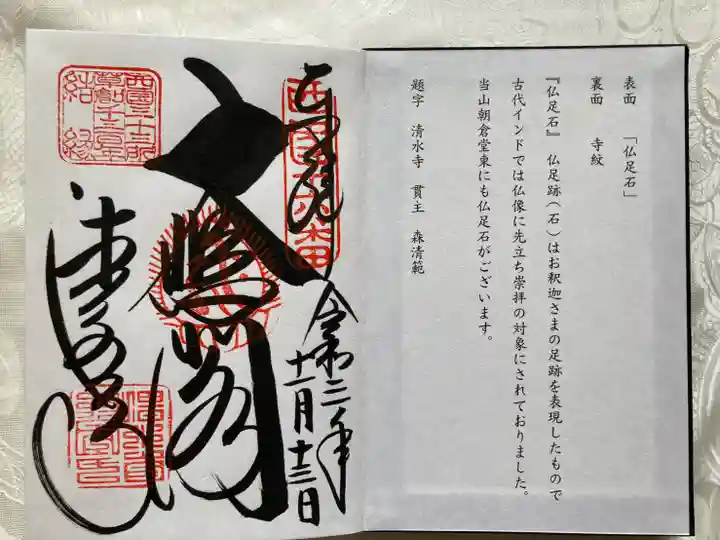 表面　「仏足石」
裏面　寺紋
『仏足石』　仏足跡（石）はお釈迦さまの足跡を表現したもので
古代インドでは仏像に先立ち崇拝の対象にされておりました。
当山朝倉堂東にも仏足石がございます。
題字　清水寺　貫主　森清範
奉拝
令和三年
十一月十三日
大悲閣
清水寺
西国三十三所
草創1300年
結縁